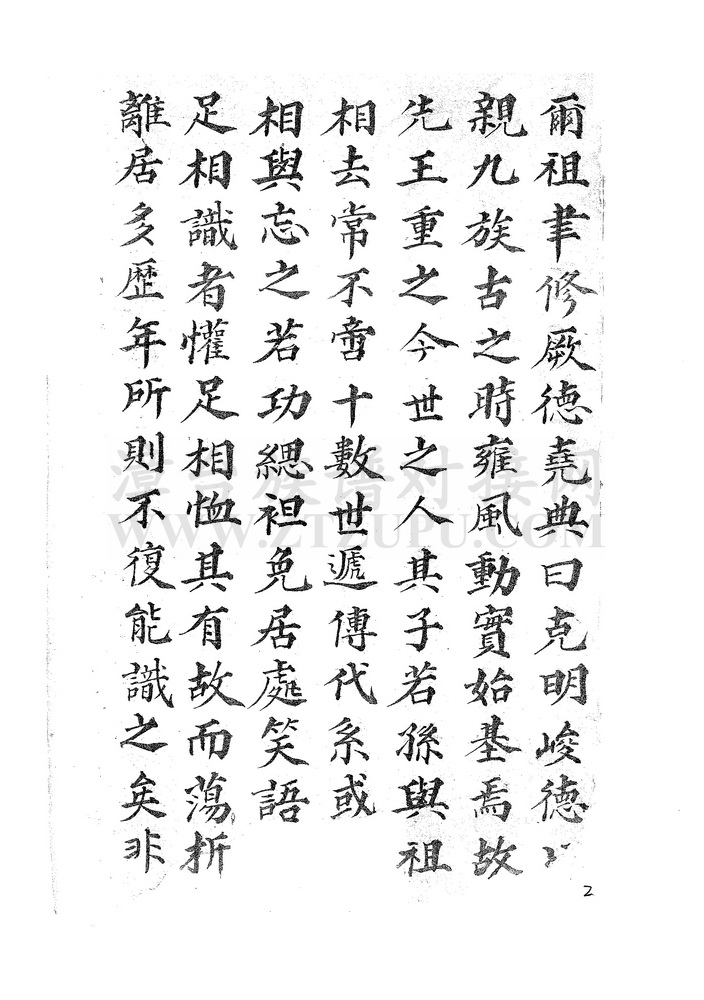 爾祖聿修厥德堯典曰克明峻德以
親九族古之時雍風動實始基焉故
先王重之今世之人其子若孫與祖
相去常不啻十數世遞傳代系或
相與忘之若功緦袒免居處笑語
足相識者懽足相恤其有故而蕩折
離居多歷年所則不復能識之矣非
漳台族谱对接网
WWW.ZTZUPU.COM
2